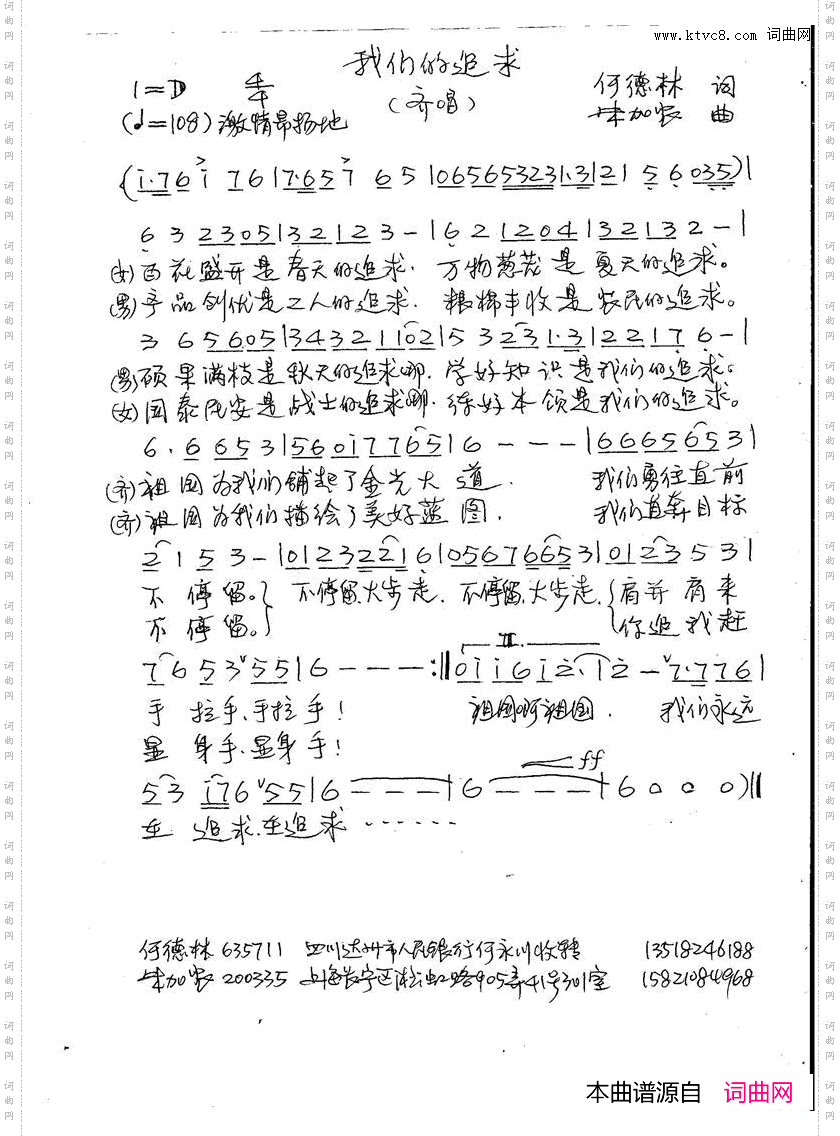 www.ktvc8.com 词曲网
我们的追求
1=D 4/4 (齐唱) 何德林 词
(♩=108) 激情昂扬地 朱加农 曲
(i·76i 761 7·657 651 0656532 31·3 121 56035)
6 3 2305 | 32123 - | 6 21204 | 32132 - |
(女)百花盛开是春天的追求. 万物葱茏是夏天的追求。
(男)产品创优是工人的追求. 粮棉丰收是农民的追求。
3 65605 | 34321102 | 5 3231·3 | 22176 - |
(男)硕果满枝是秋天的追求哪. 学好知识是我们的追求。
(女)国泰民安是战士的追求哪. 练好本领是我们的追求。
6·6653 | 560i7765 | 6 - - - | 66656531 |
(齐)祖国为我们铺起了金光大道. 我们勇往直前
(齐)祖国为我们描绘了美好蓝图. 我们直奔目标
2153 - | 01232216 | 05676653 | 0123531 |
不停留。 不停留,大步走. 不停留,大步走. 肩并肩来
不停留。 你追我赶
II.
7653 55 | 6 - - - :‖ 0ii6i2·i2 - 7·776 |
手拉手、手拉手! 祖国啊祖国. 我们永远
显身手、显身手!
ff
53i76 55 | 6 - - - | 6 - - - | 6 0 0 0 )‖
在追求.在追求······
何德林 635711 四川达州市人民银行何永川收转 13518246188
朱加农 200335 上海长宁区淞虹路905弄41号301室 15821084968
本曲谱源自 词曲网
词曲网